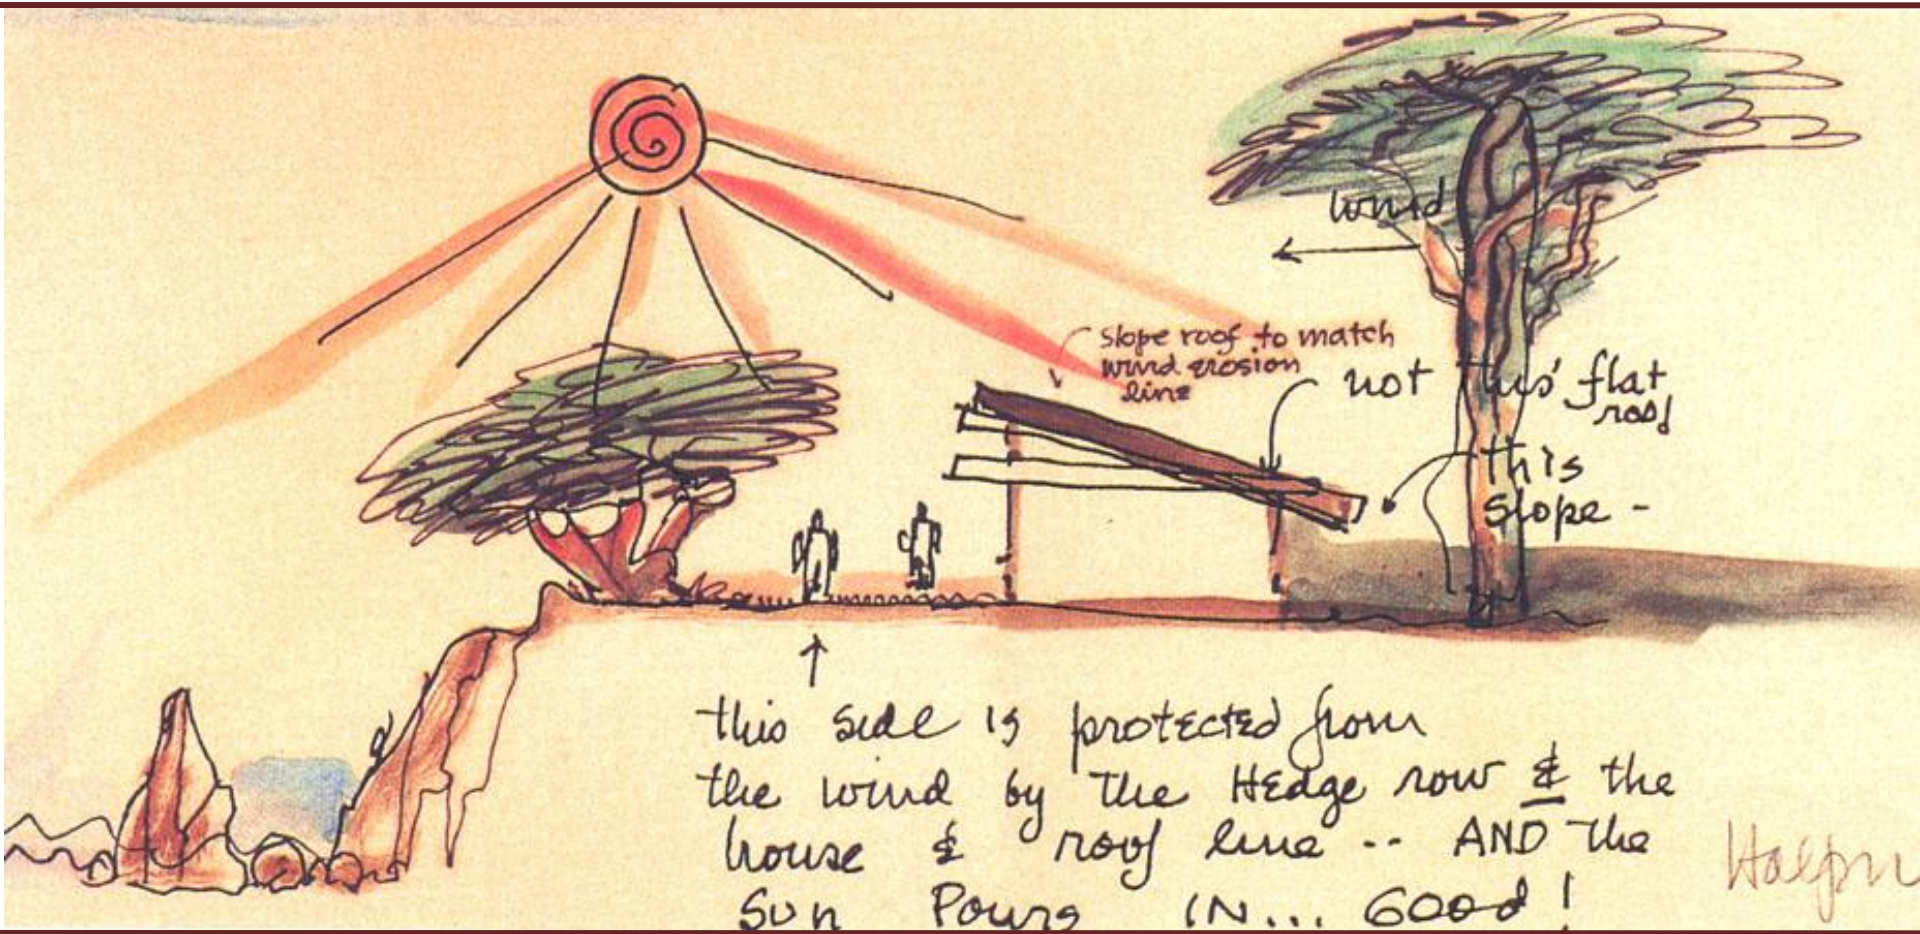 wind
slope roof to match
wind erosion
line
not this flat
roof
this
slope -
this side is protected from
the wind by the Hedge row & the
house & roof line -- AND the
Sun Pours IN... GOOd !